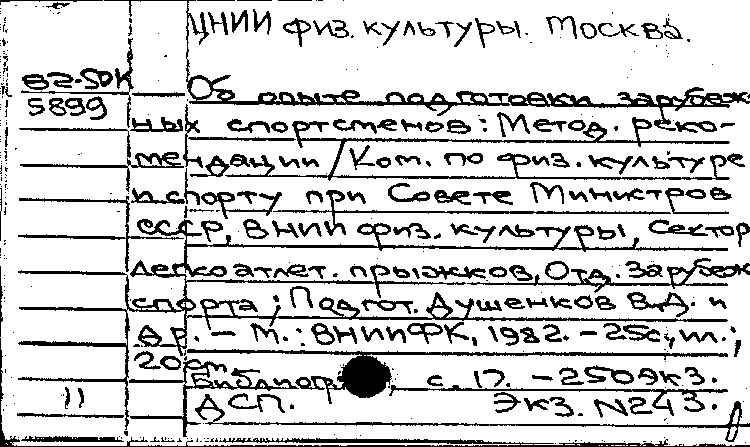 ЦНИИ физ. культуры. Москва.
82-5DK
5899
Об опыте подготовки зарубеж
ных спортсменов: Метод. реко-
мендации / Ком. по физ. культуре
и спорту при Совете Министров
СССР, ВНИИ физ. культуры, Сектор
легкоатлет. прыжков, Отд. зарубеж
спорта; Подгот. Душенков В.Д. и
др. – М.: ВНИИФК, 1982. – 25с., ил.;
20см –
Библиогр. , с. 17. – 250экз.
11 ДСП. Экз. N243.